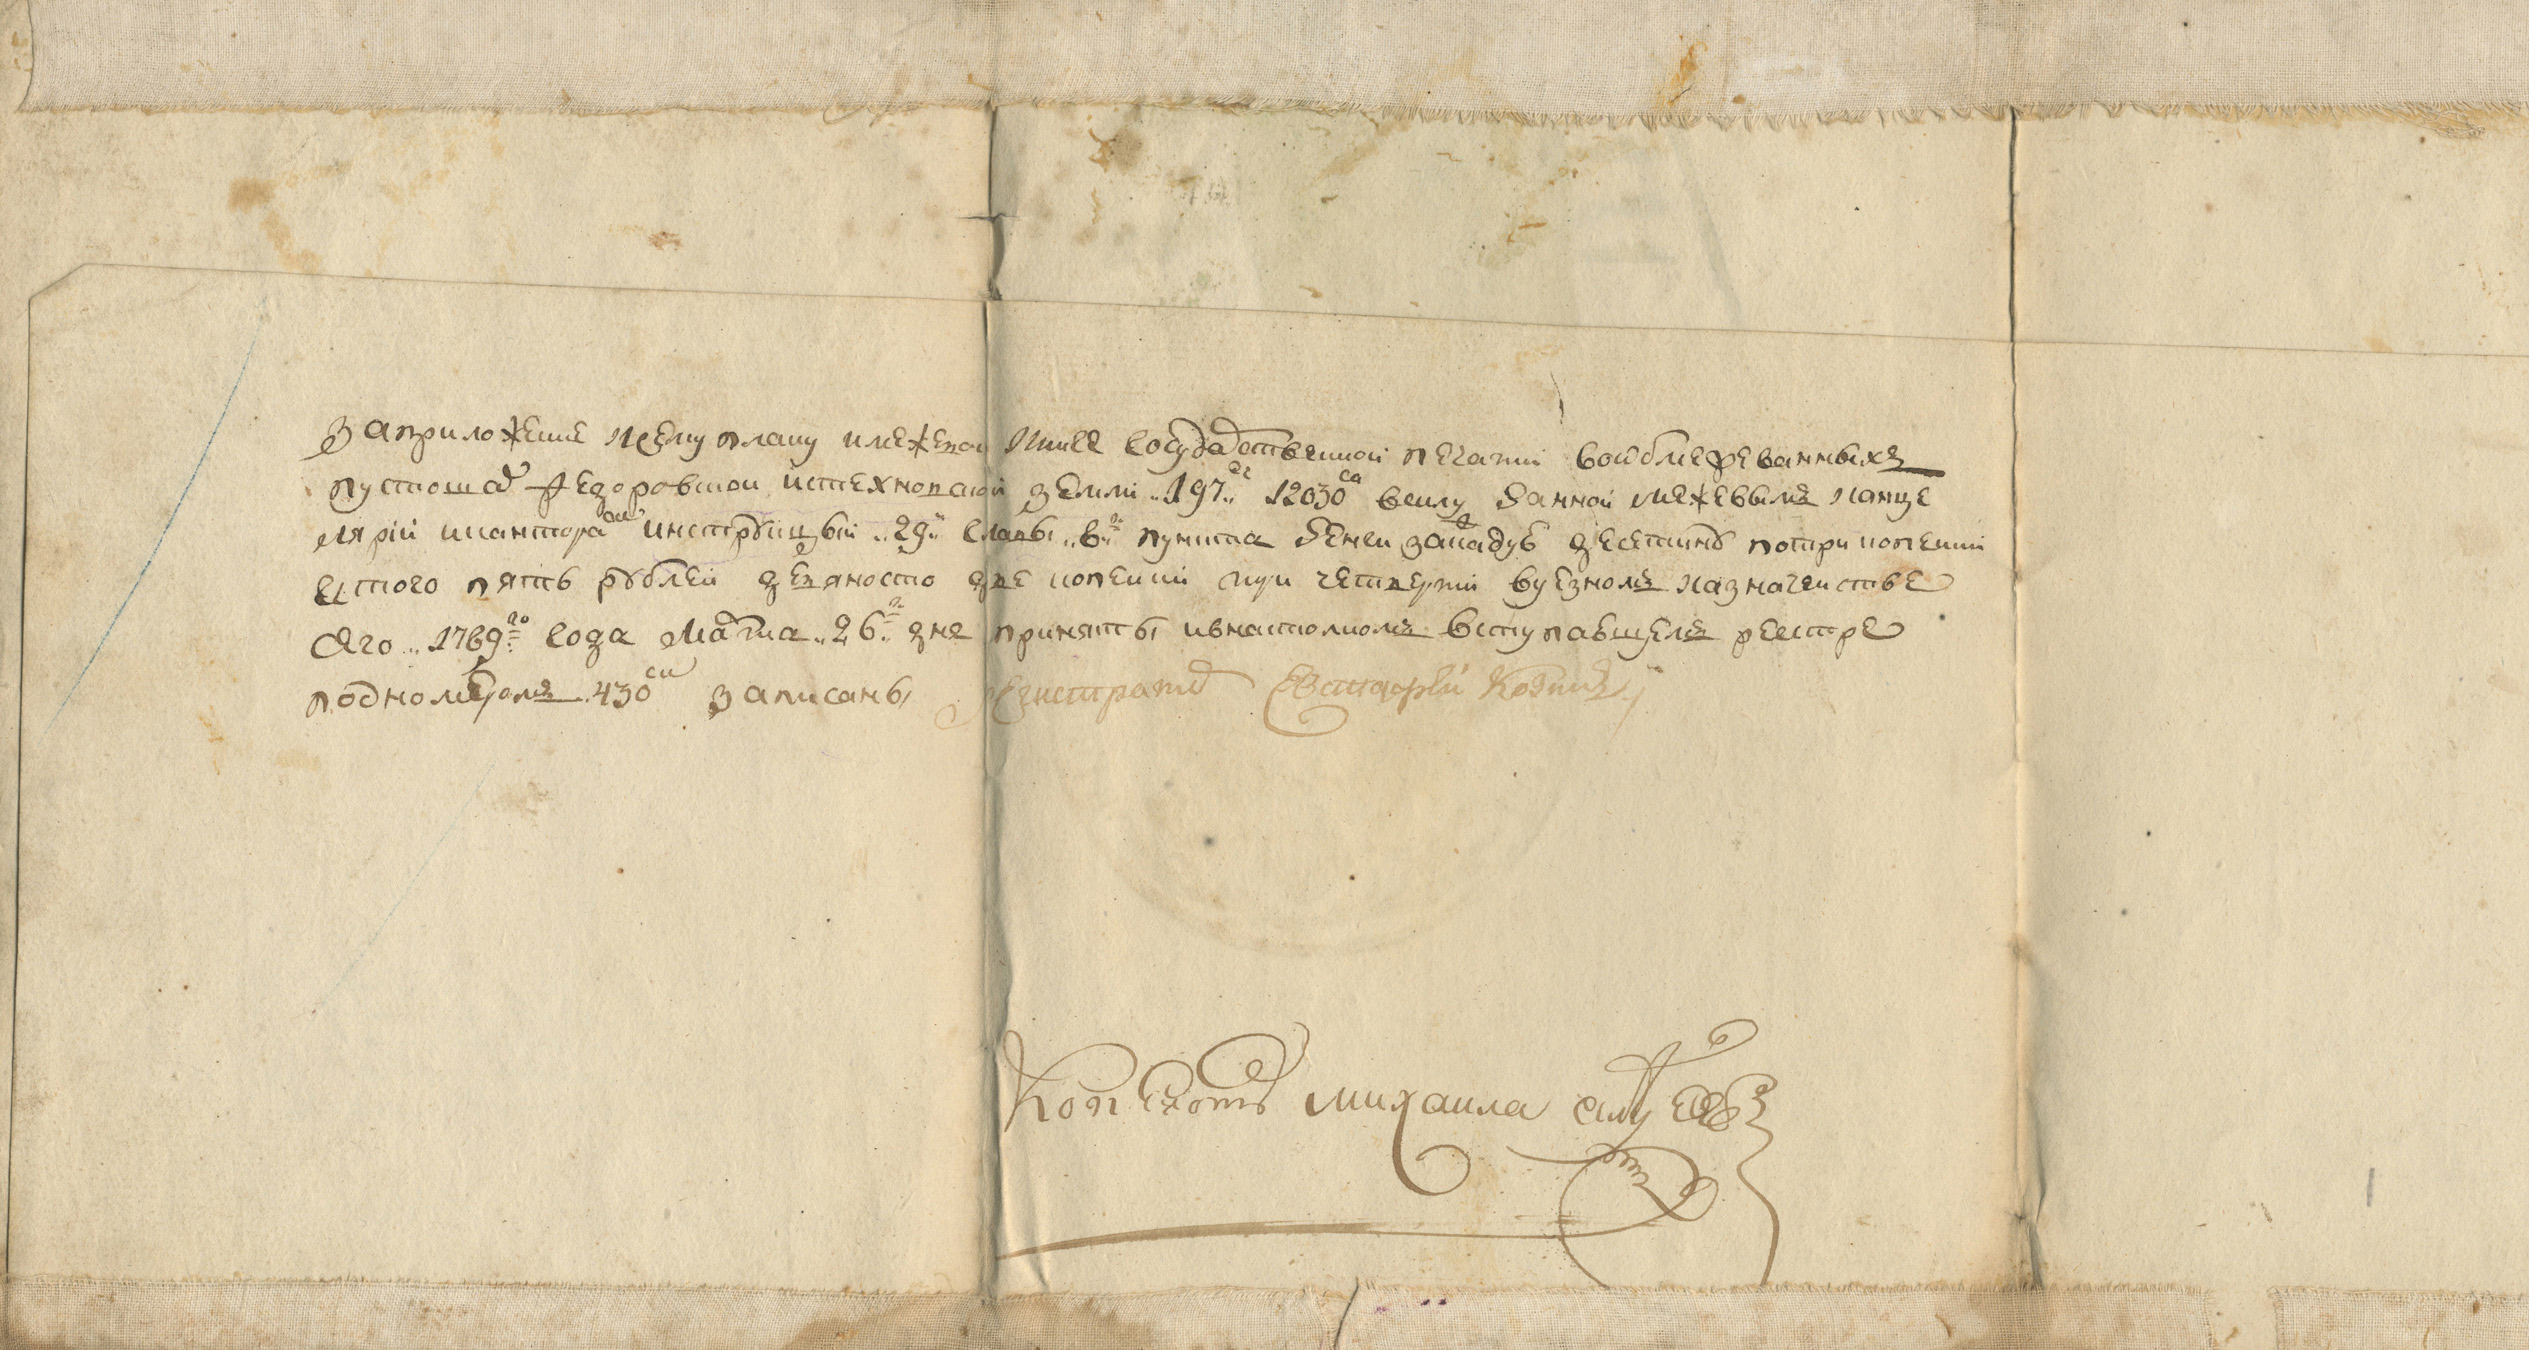 За приложение к сему плану и межевой книге государственной печати во обмежеванных
пустоша Федоровской земли 197 12030 в силу данной межевым канце
лярий и кантора инструкцыи 29 главы 6 пункта денги за каждую десетину по три копеики
с того пять рублей девяносто две копеики при четверти в уезном казначеистве
сего 1769го года марта 26го дня приняты и в настолном вступавшем реестре
под номером 430 записаны регистратор Евстафей
Копеистъ Михаила